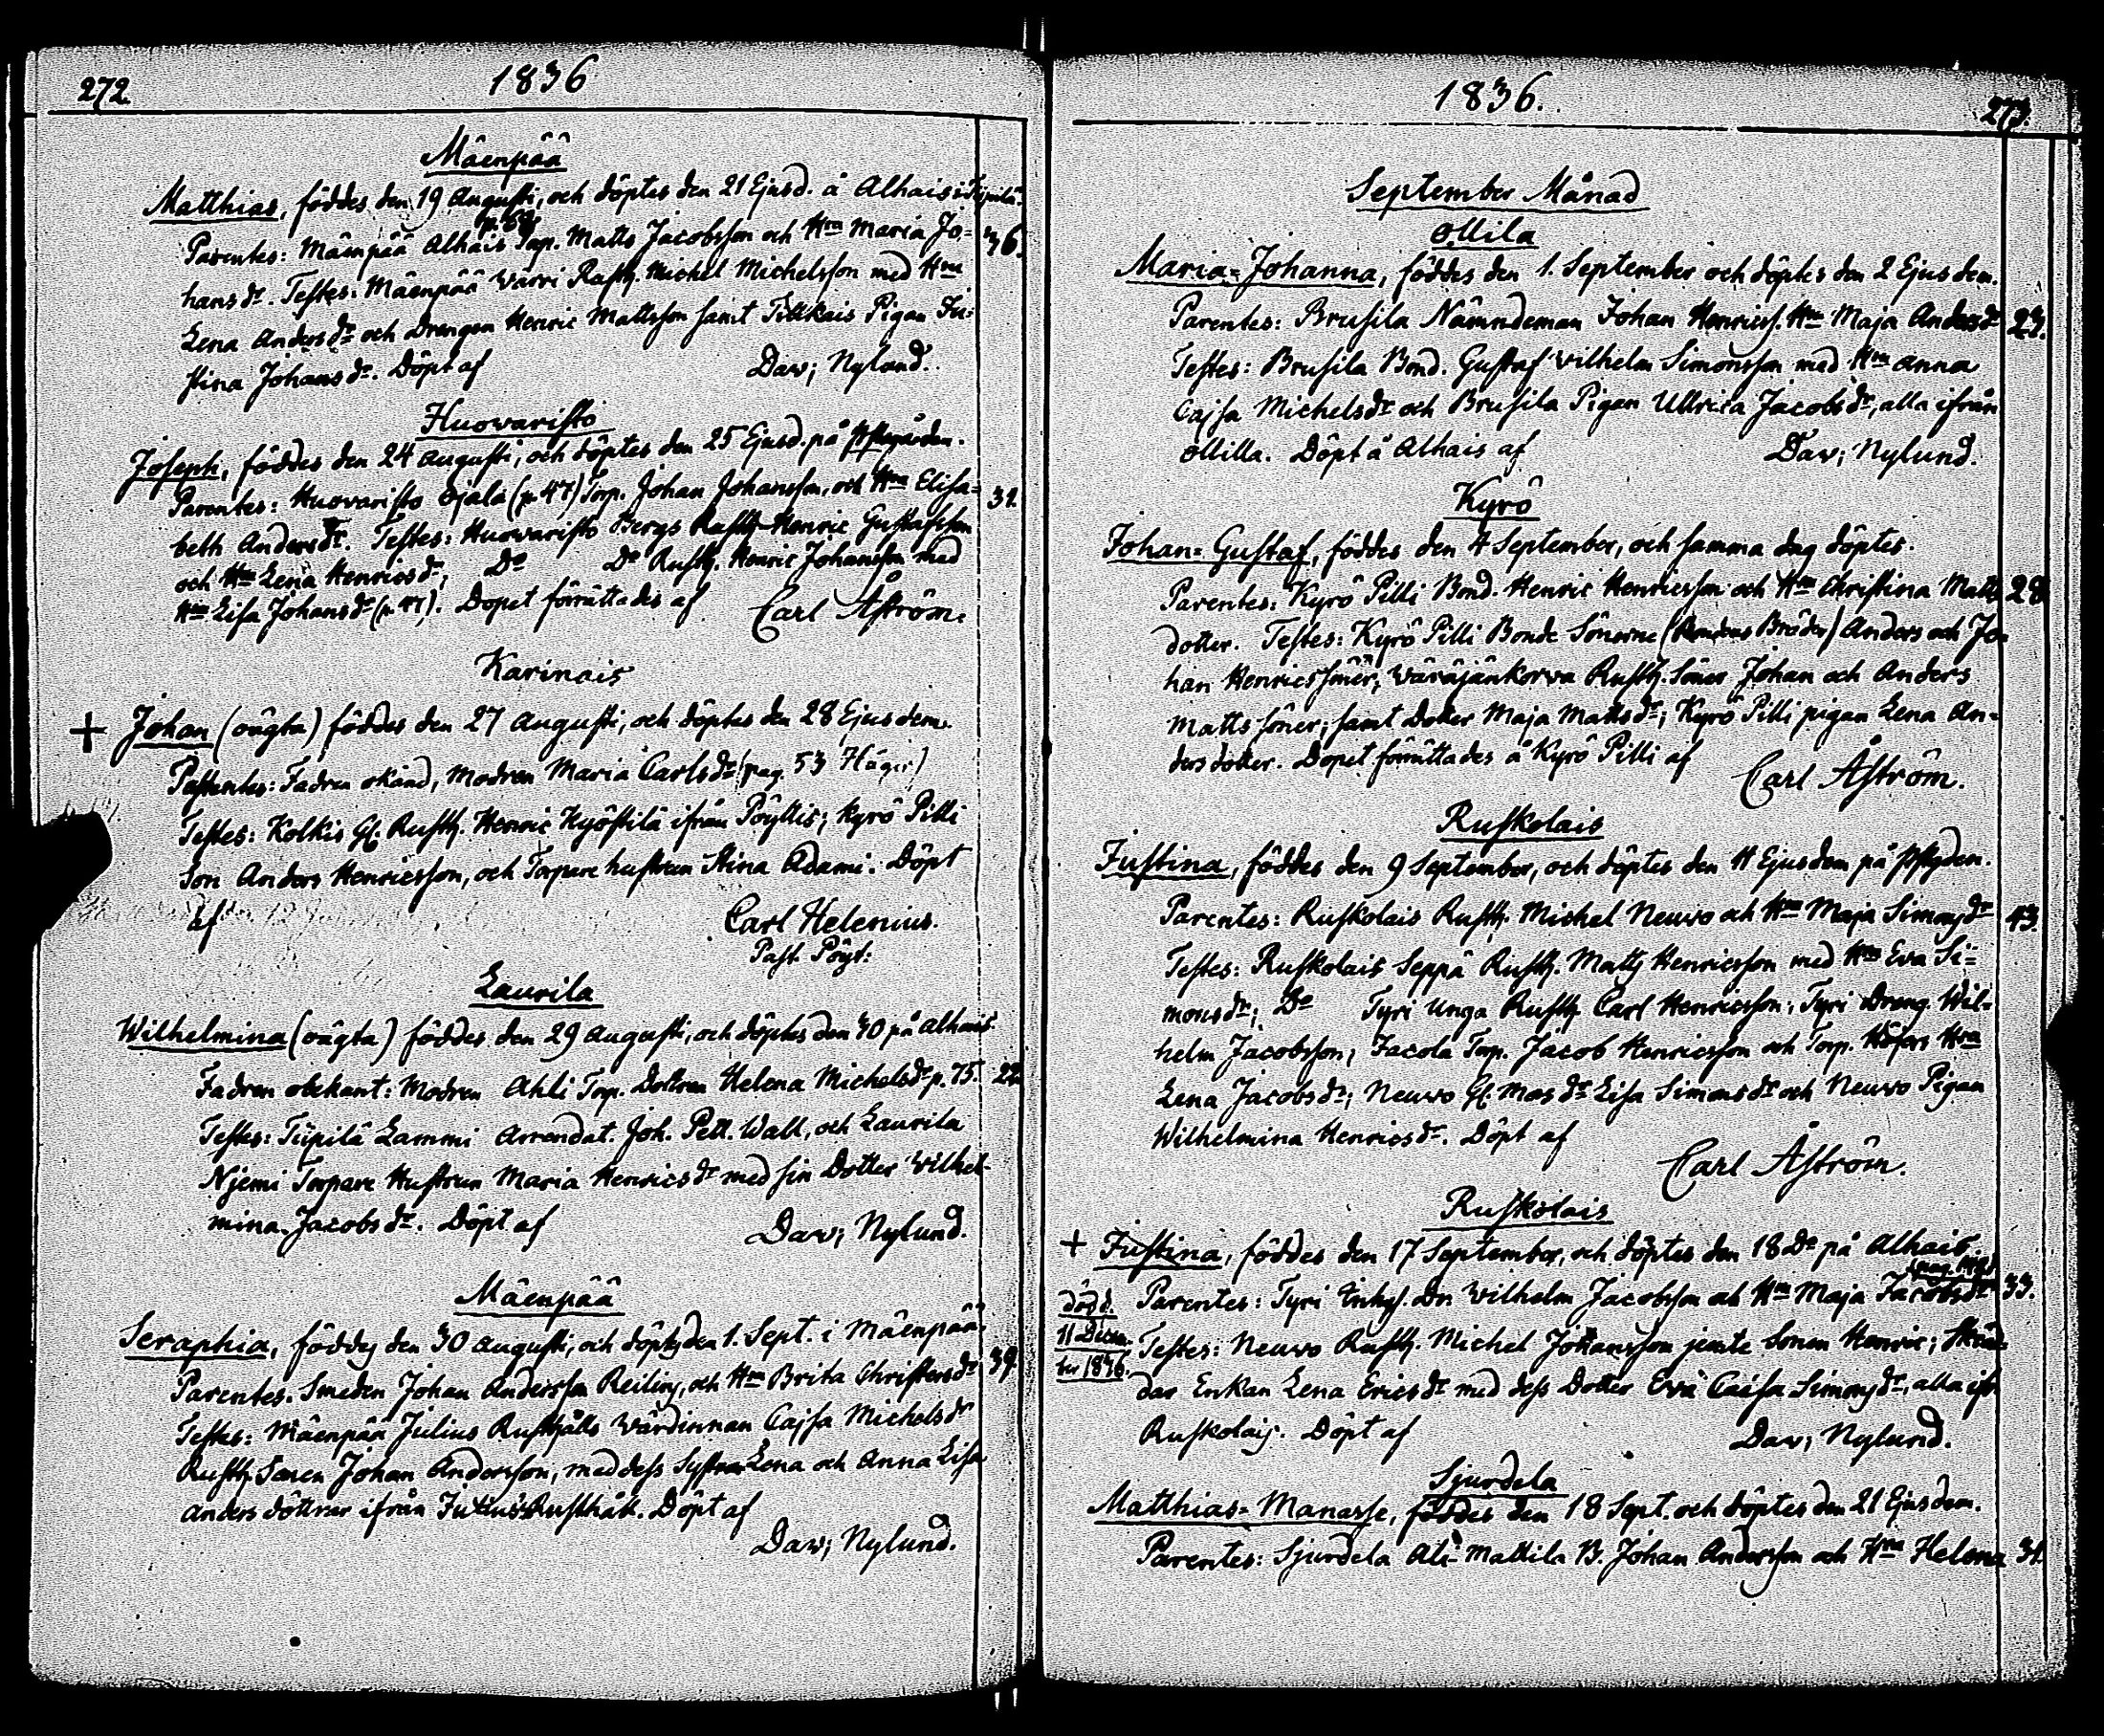 272.
1836
Mäenpää
Matthias, föddes den 19 Augusti, och döptes den 21 Ejusd. å Alhais i
Parentes: Mäenpää Alhais Torp. Matts Jacobsson och Hru Maria Jo= 36.
hansdr. Testes: Mäenpää Wärri Rusth. Michel Michelsson med Hru
Lena Andersdr och Drengen Henric Mattsson samt Pigan Ju=
stina Johansdr. Döpt af Dav; Nylund.
Huovaristo
Joseph, föddes den 24 Augusti, och döptes den 25 Ejusd. på Prstegården.
Parentes: Huovaristo Ojala (p. 47) Torp. Johan Johansson, och Hru Elisa= 31.
beth Andersdr. Testes: Huovaristo Bergs Rusth. Henric Gustafsson
och Hru Lena Henricsdr; Do Do Rusth. Henric Johansson med
Hru Lisa Johansdr (p. 47). Dopet förrättades af Carl Åström.
Karinais
+ Johan (oägta) föddes den 27 Augusti, och döptes den 28 Ejusdem.
Parentes: Fadren okänd, Modren Maria Carlsdr (pag. 53 Häger)
Testes: Kolkis Gl. Rusth. Henric Kyöstilä ifrån Pöyttis; Kyrö Pilli
Son Anders Henricsson, och Torpare hustrun Stina Adami. Döpt
af Carl Helenius.
Past. Pöyt:
Laurila
Wilhelmina (oägta) föddes den 29 Augusti, och döptes den 30 på Alhais.
Fadren obekant: Modren Ahli Torp. Dottren Helena Michelsdr p. 75. 22
Testes: Tiipilä Lammi Arrendat. Joh. Pett. Wall, och Laurila
Njemi Torpare Hustrun Maria Henricsdr med sin Dotter Wilhel-
mina Jacobsdr. Döpt af Dav; Nylund.
Mäenpää
Seraphia, föddes den 30 Augusti, och döptes den 1. Sept. i Mäenpää.
Parentes. Smeden Johan Andersson Reiling, och Hru Brita Christersdr 39.
Testes: Mäenpää Julius Rusthålls Wärdinnan Cajsa Michelsdr
Rusth. Sonen Johan Andersson, med dess Systrar Lena och Anna Lisa
Anders döttrar ifrån Julius Rusthåll. Döpt af
Dav; Nylund.
1836.
273.
September Månad
Ollila
Maria=Johanna, föddes den 1. September och döptes den 2 Ejusdem.
Parentes: Brusila Nämndeman Johan Henricss. Hru Maja Andersdr 23.
Testes: Brusila Bond. Gustaf Wilhelm Simonsson med Hru Anna
Cajsa Michelsdr och Brusila Pigan Ullrica Jacobsdr, alla ifrån
Ollilla. Döpt å Alhais af Dav; Nylund.
Kyrö
Johan=Gustaf, föddes den 4 September, och samma dag döptes.
Parentes: Kyrö Pilli Bond. Henric Henricsson och Hru Christina Matts 28
dotter. Testes: Kyrö Pilli Bonde Sönerne (Bröder) Anders och Jo=
han Henricssöner; Wäräjänkorva Rusth. Söner Johan och Anders
Matts söner; samt Dotter Maja Mattsdr; Kyrö Pilli pigan Lena An=
ders dotter. Dopet förrättades å Kyrö Pilli af Carl Åström.
Ruskolais
Justina, föddes den 9 September, och döptes den 11 Ejusdem på Pstgden.
Parentes: Ruskolais Rusth. Michel Neuvo och Hru Maja Simonsdr 43.
Testes: Ruskolais Seppä Rusth. Matts Henricsson med Hru Eva Si=
monsdr; Do Tyri Unga Rusth. Carl Henricsson; Tyri Dreng. Wil=
helm Jacobsson; Jacola Torp. Jacob Henricsson och Torp. Hru
Lena Jacobsdr; Neuvo Gl. Mors dr Lisa Simonsdr och Neuvo Pigan
Wilhelmina Henricsdr. Döpt af
Carl Åström.
Ruskolais
+ Justina, föddes den 17 September, och döptes den 18 Do på Alhais.
Parentes: Tyri Inhys. Dr. Wilhelm Jacobsson och Hru Maja Jacobsdr 33.
död d.
11 Decem
ber 1836.
Testes: Neuvo Rusth. Michel Johansson jemte Sonen Henric;
dar Enkan Lena Ericsdr med dess Dotter Eva Caisa Simonsdr, alla ifr.
Ruskolais. Döpt af Dav; Nylund.
Sjurdela
Matthias=Manasse, föddes den 18 Sept. och döptes den 21 Ejusdem.
Parentes: Sjurdela Ali-Mattila B. Johan Andersson och Hru Helena 31.